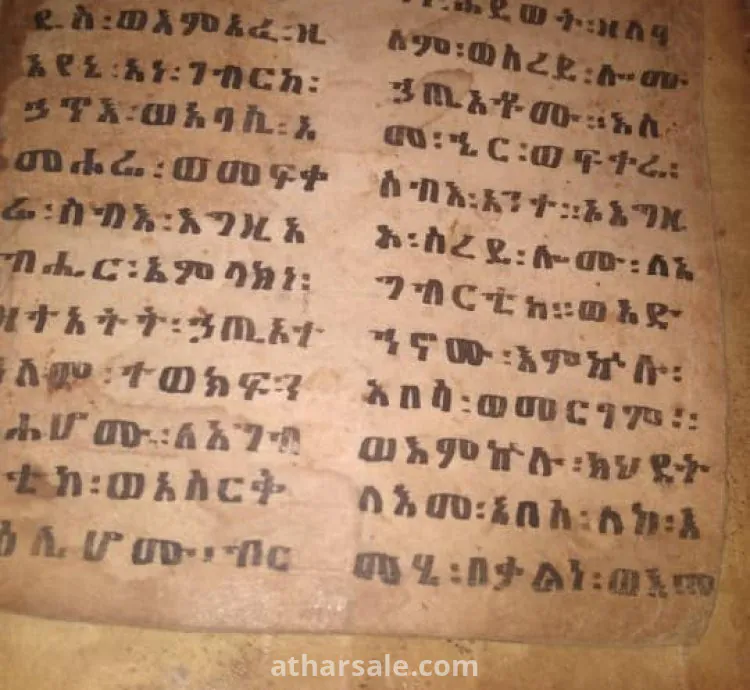 ዱስ፡ወእምእፈ፡ዚ
አየኒ፡አነ፡ገብርከ፡
ኃጥእ፡ወአባሲ፡አ
መሐሬ፡ወመፍቀ
ሬ፡ስብእ፡እግዚአ
ብሔር፡አምላክነ፡
ዝተአትት፡ኃጢአተ
ዓለም፡ተወክፍ፡ን
ሖሙ፡ለአግብ
ርቲከ፡ወአስርቅ
ዕሊሆሙ፡ብር
ሐይወት፡ዘለዓ
ለም፡ወስረይ፡ሎሙ፡
ኃጢአቶሙ፡፡እስ
መ፡ኄር፡ወፍተሬ፡
ሰብእ፡አንተ፡፡ኦእግዚ
አ፡ስረይ፡ሎሙ፡ለአ
ግብርቲከ፡፡ወአድ
ኅኖሙ፡እምኵሉ፡
አበሳ፡ወመርገም፡፡
ወእምኵሉ፡ክህደት
ለእመ፡አበሱ፡ለከ፡እ
መሂ፡በታልነ፡ወእመ
atharsale.com